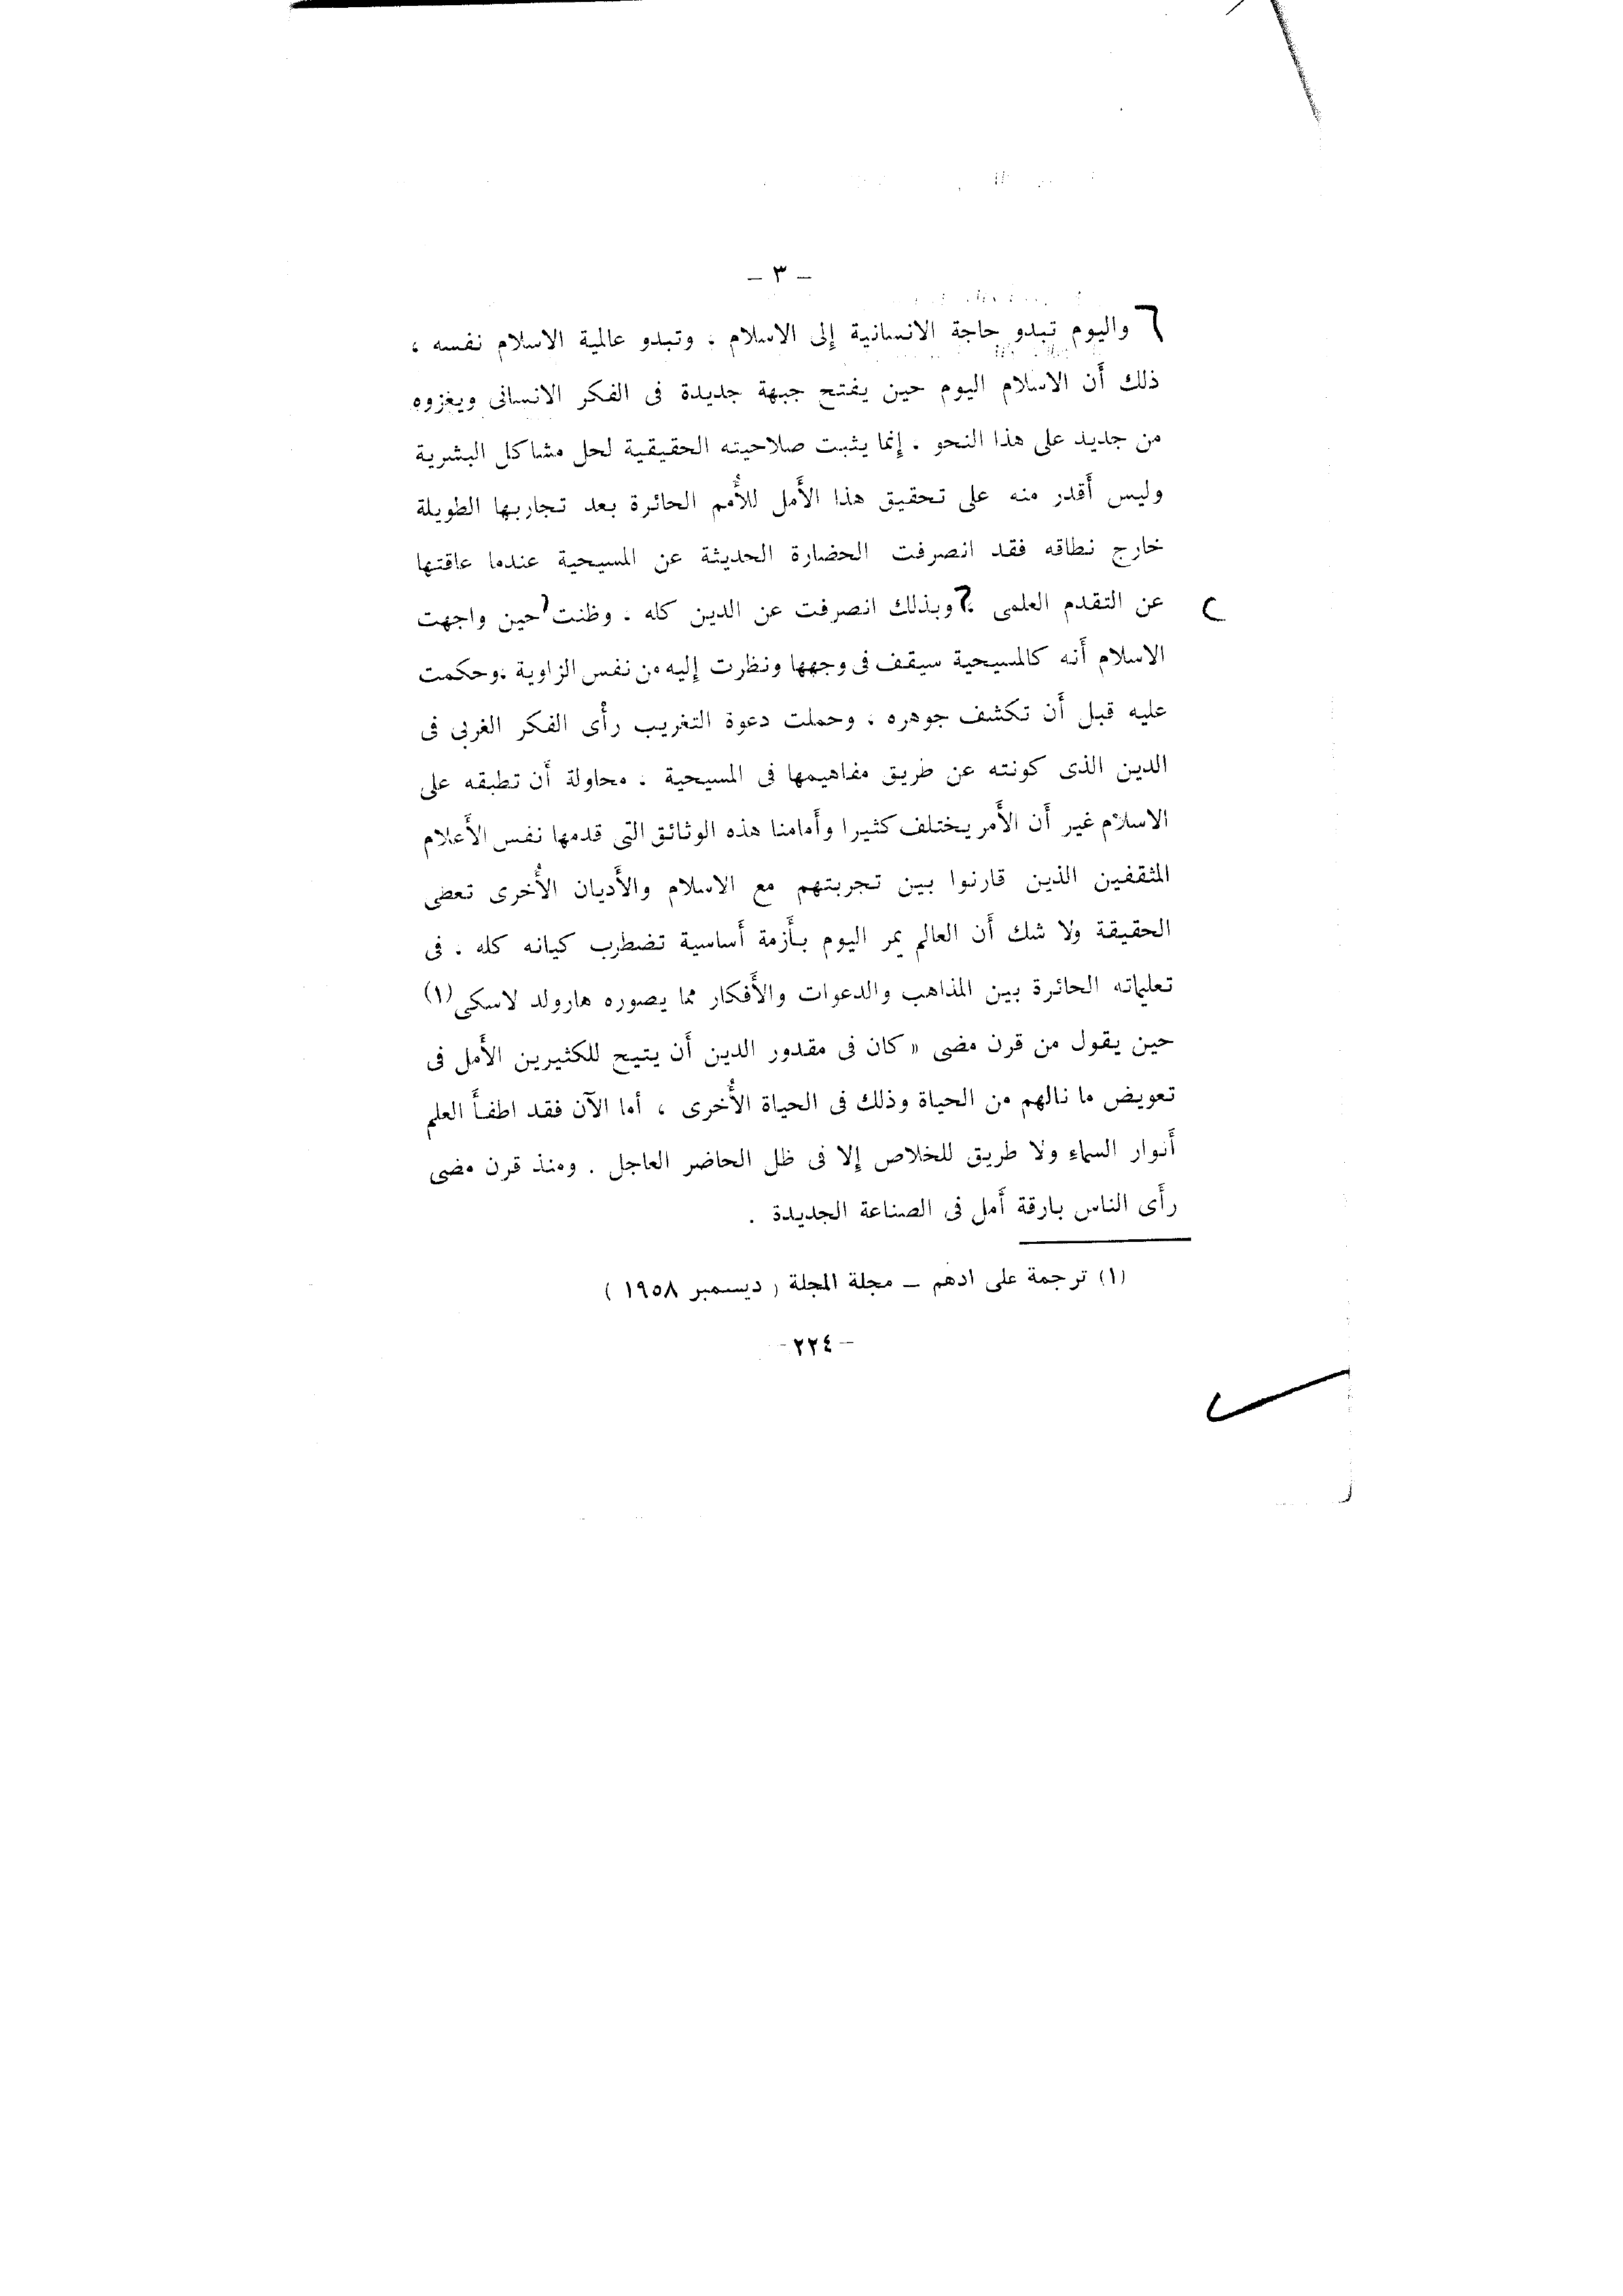 – ٣ –
واليوم تبدو حاجة الانسانية إلى الاسلام ، وتبدو عالمية الاسلام نفسه ،
ذلك أن الاسلام اليوم حين يفتح جبهة جديدة فى الفكر الانسانى ويغزوه
من جديد على هذا النحو . إنما يثبت صلاحيته الحقيقية لحل مشاكل البشرية
وليس أقدر منه على تحقيق هذا الأمل للأُمم الحائرة بعد تجاربها الطويلة
خارج نطاقه فقد انصرفت الحضارة الحديثة عن المسيحية عندما عاقتها
عن التقدم العلمى ، وبذلك انصرفت عن الدين كله . وظنت حين واجهت
الاسلام أنه كالمسيحية سيقف فى وجهها ونظرت إليه من نفس الزاوية ، وحكمت
عليه قبل أن تكشف جوهره ، وحملت دعوة التغريب رأى الفكر الغربى فى
الدين الذى كونته عن طريق مفاهيمها فى المسيحية . محاولة أن تطبقه على
الاسلام غير أن الأمر يختلف كثيرا وأمامنا هذه الوثائق التى قدمها نفس الأعلام
المثقفين الذين قارنوا بين تجربتهم مع الاسلام والأديان الأُخرى تعطى
الحقيقة ولا شك أن العالم يمر اليوم بأزمة أساسية تضطرب كيانه كله . فى
تعلياته الحائرة بين المذاهب والدعوات والأفكار مما يصوره هارولد لاسكى (١)
حين يقول من قرن مضى « كان فى مقدور الدين أن يتيح للكثيرين الأمل فى
تعويض ما نالهم من الحياة وذلك فى الحياة الأُخرى ، أما الآن فقد اطفأ العلم
أنوار السماء ولا طريق للخلاص إلا فى ظل الحاضر العاجل . ومنذ قرن مضى
رأى الناس بارقة أمل فى الصناعة الجديدة .
(١) ترجمة على ادهم – مجلة المجلة ( ديسمبر ١٩٥٨ )
– ٢٢٤ –